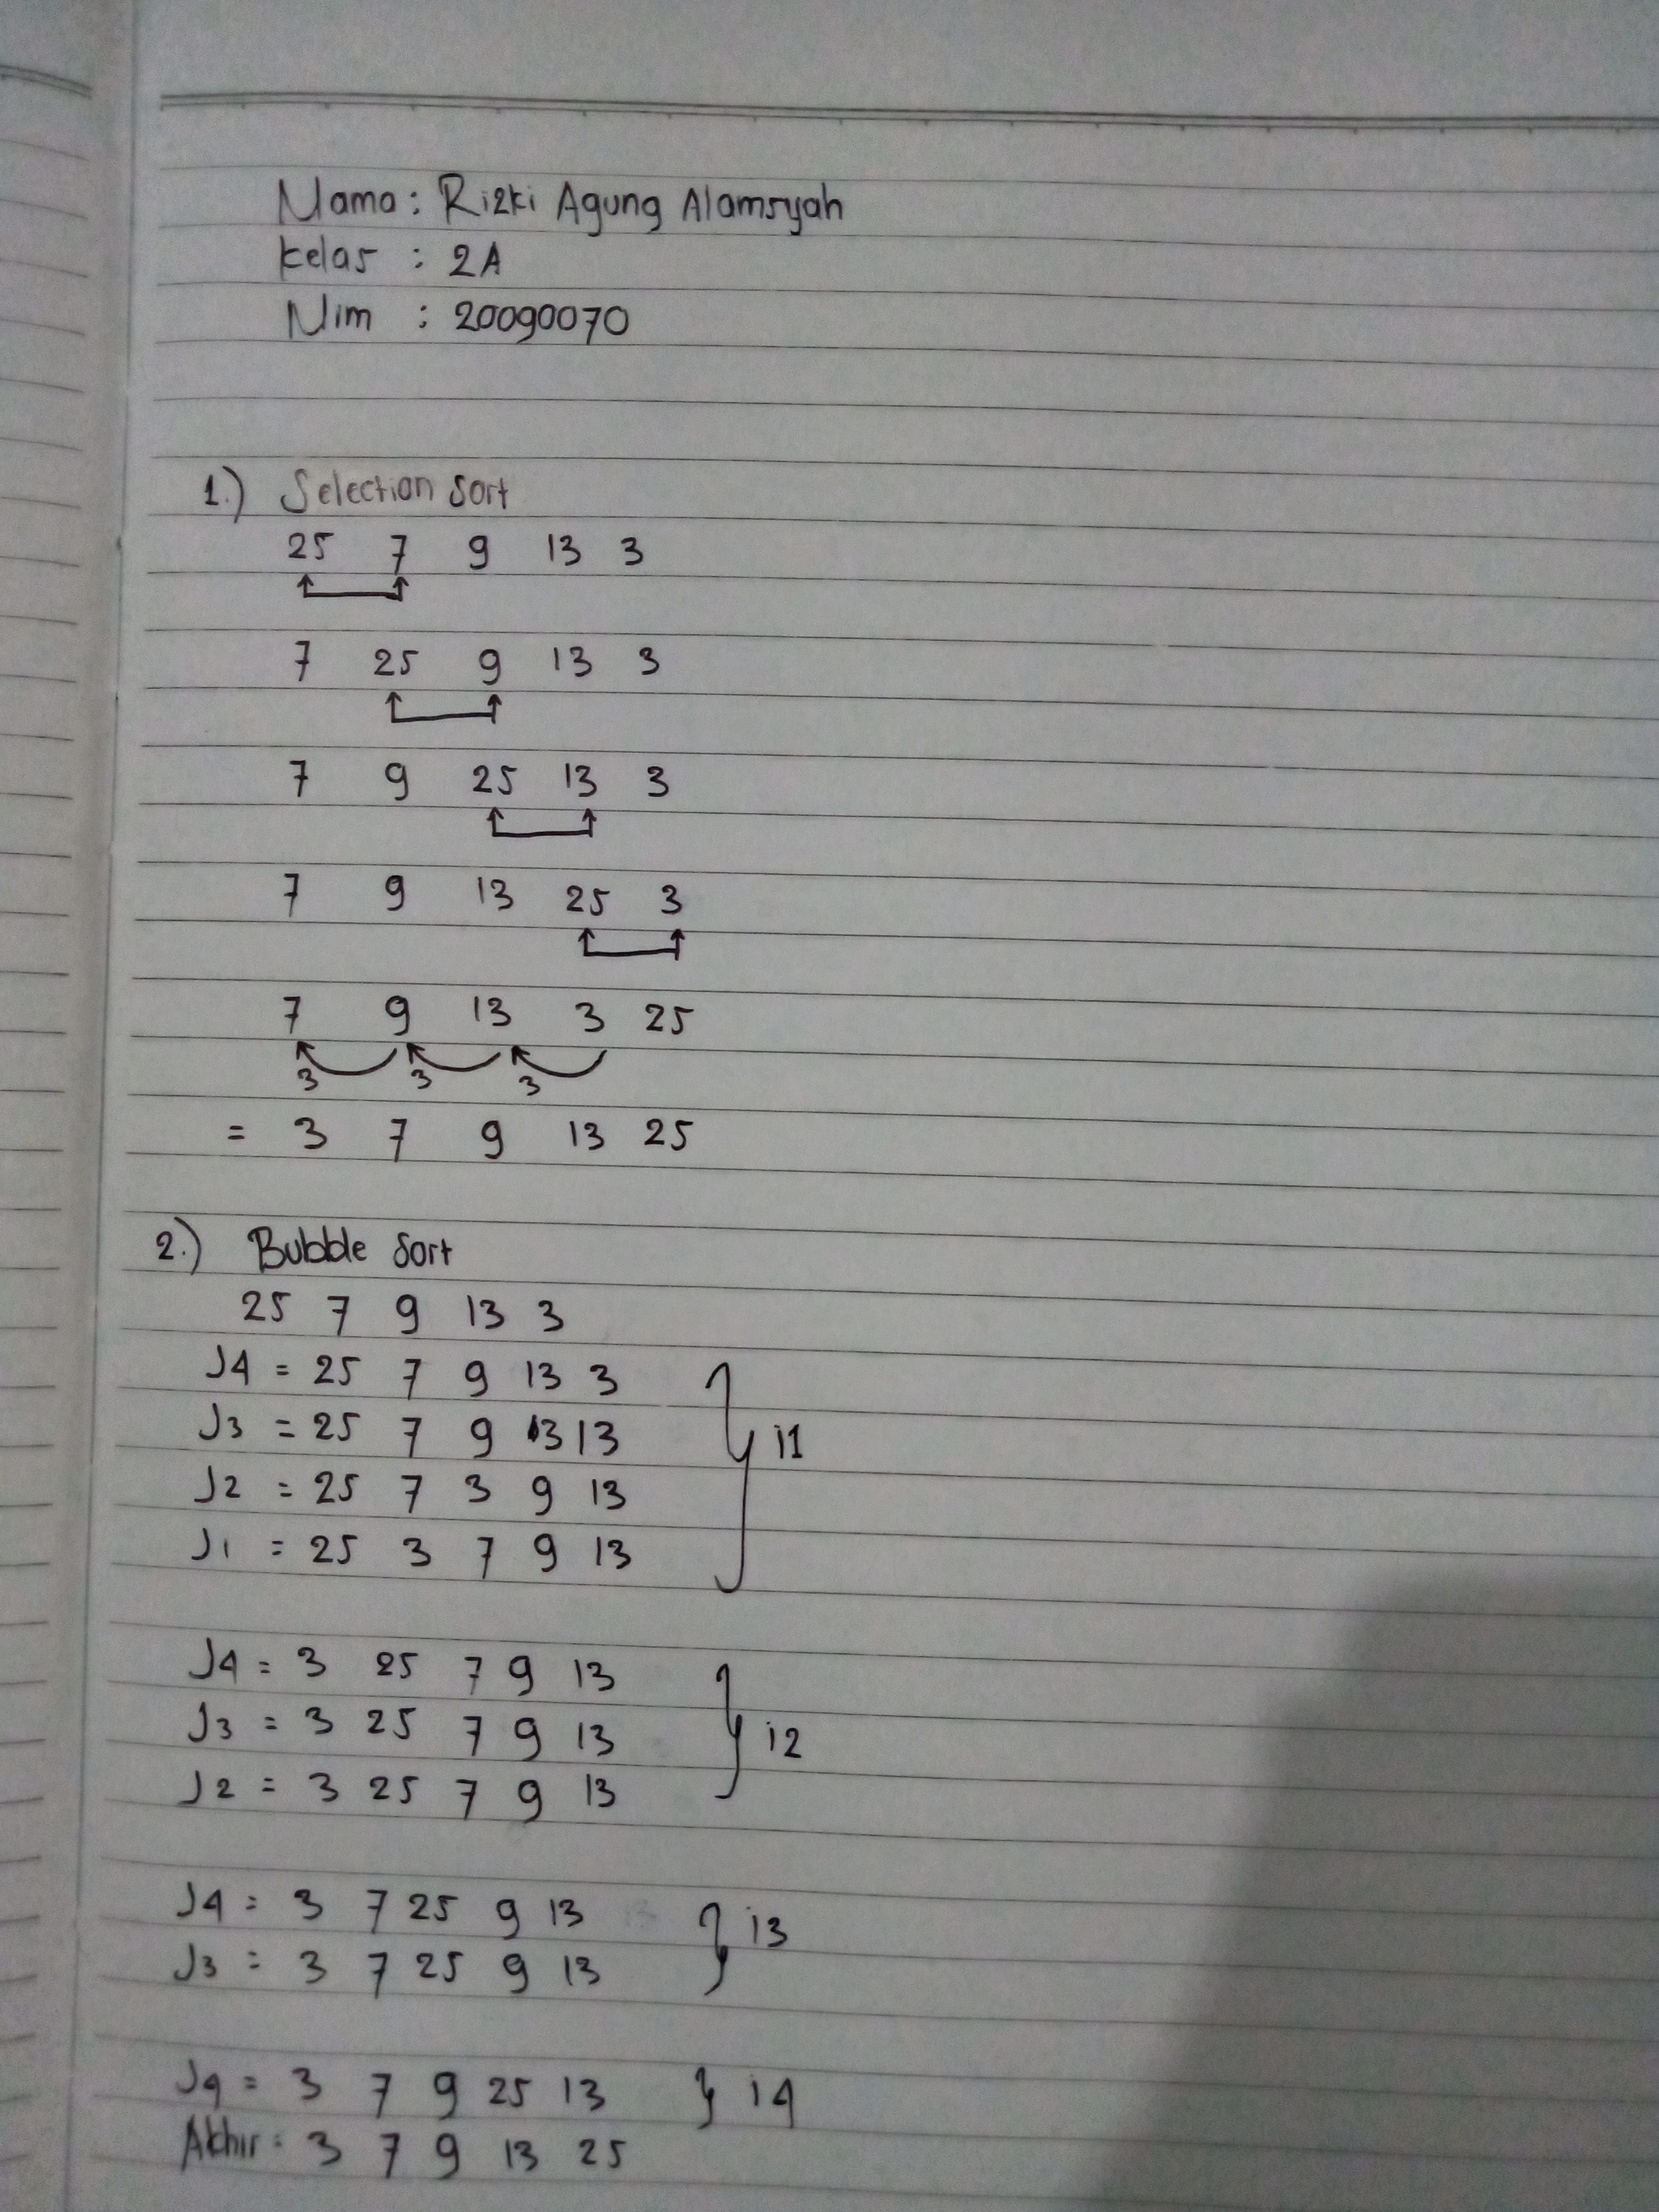 Nama : Rizki Agung Alamsyah
Kelas : 2A
Nim : 20090070
1.) Selection Sort
25 7 9 13 3
7 25 9 13 3
7 9 25 13 3
7 9 13 25 3
7 9 13 3 25
3 3 3
= 3 7 9 13 25
2.) Bubble Sort
25 7 9 13 3
J4 = 25 7 9 13 3
J3 = 25 7 9 3 13
J2 = 25 7 3 9 13 i1
J1 = 25 3 7 9 13
J4 = 3 25 7 9 13
J3 = 3 25 7 9 13 i2
J2 = 3 25 7 9 13
J4 = 3 7 25 9 13 i3
J3 = 3 7 25 9 13
J4 = 3 7 9 25 13 i4
Akhir = 3 7 9 13 25